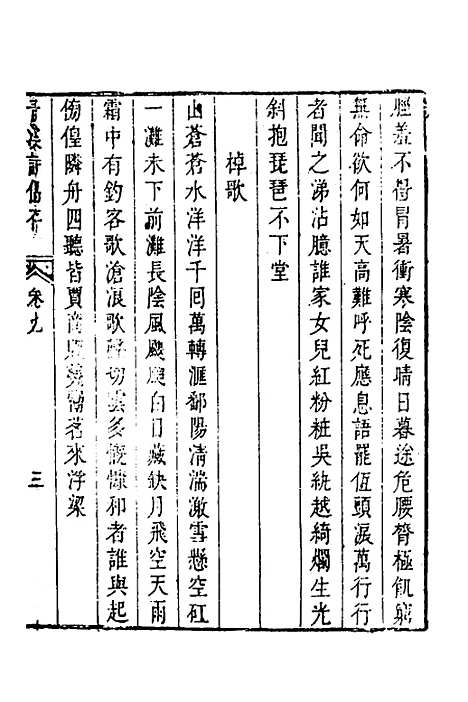 脛羞不得冒暑衝寒陰復晴日暮途危腰脊極飢窮
無命欲何如天高難呼死應息語罷低頭淚萬行行
者聞之涕沾臆誰家女兒紅粉粧吳紈越綺爛生光
斜抱琵琶不下堂
棹歌
山蒼蒼水洋洋千囘萬轉滙鄱陽清湍激雪懸空矼
一灘未下前灘長陰風颼颼白日藏缺月飛空天雨
霜中有釣客歌滄浪歌聲切雲多慨慷和者誰與起
徬徨隣舟四聽皆賈商茗來浮梁
卷九
三